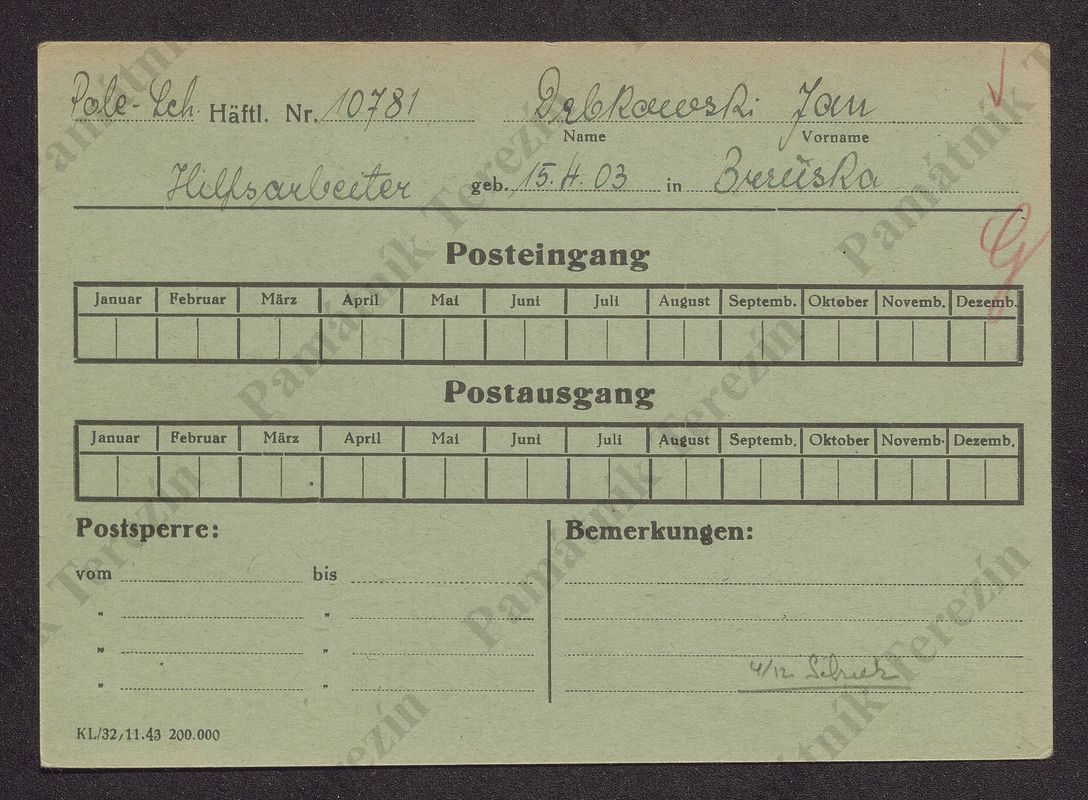 Pole-Sch. Häftl. Nr. 10781 Drbkowski Jan
Name Vorname
Hilfsarbeiter geb. 15.4.03 in
Posteingang
Januar Februar März April Mai Juni Juli August Septemb. Oktober Novemb. Dezemb.
Postausgang
Januar Februar März April Mai Juni Juli August Septemb. Oktober Novemb. Dezemb.
Postsperre: Bemerkungen:
vom bis
" "
" "
" "
4/12
KL/32/11.43 200.000
Památník Terezín